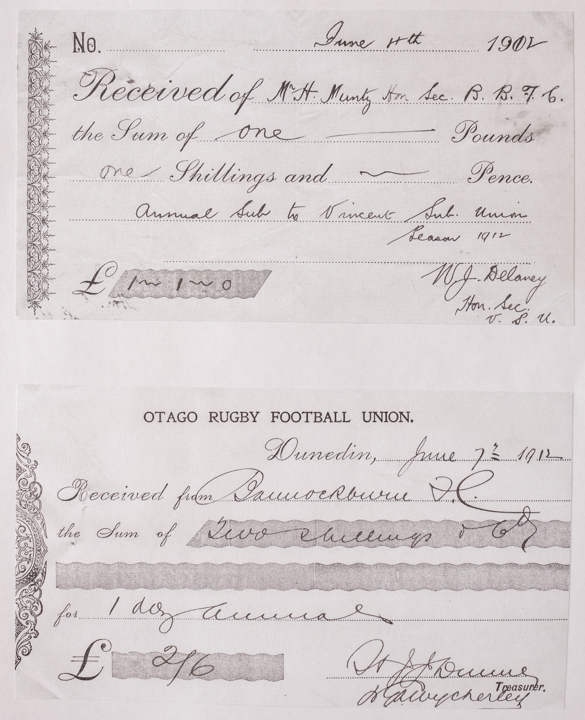 No. June 4th 1912
Received of Mr H. Muntz Hon Sec B. B. F. C.
the Sum of one Pounds
one Shillings and Pence.
Annual Sub to Vincent Sub. Union
Season 1912
£ 1 ~ 1 ~ 0
W. J. Delaney
Hon. Sec.
V. S. U.
OTAGO RUGBY FOOTBALL UNION.
Dunedin, June 7th 1912
Received from Bannockburn F.C.
the Sum of Two shillings & 6d
for 1 doz annuals
£ 2/6
Dunne
Treasurer.
Wycherley